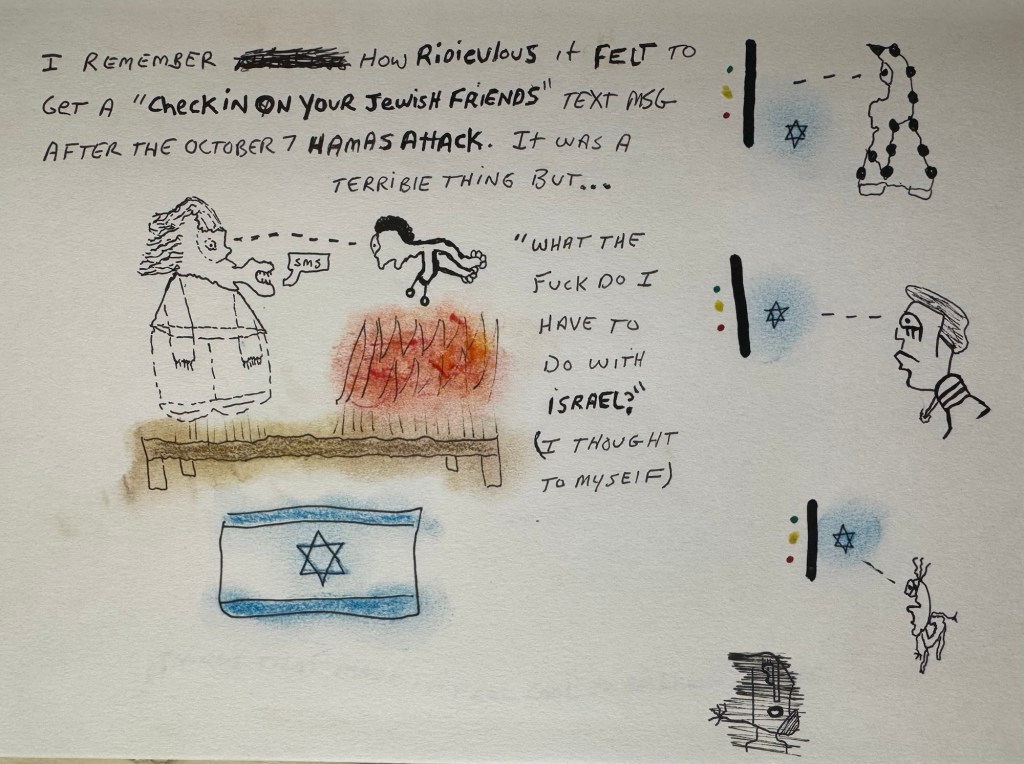 I REMEMBER HOW RiDiCULOUS it FELT TO
GET A "CheckiN ON YOUR JEWiSH FRiENDS" TEXT MSG
AFTER THE OCTOBER 7 HAMAS ATTACK. It WAS A
TERRIBLE THING BUT...
SMS
"WHAT THE
FUCK DO I
HAVE TO
DO WITH
iSRAEL?"
(I THOUGHT
TO MYSELF)